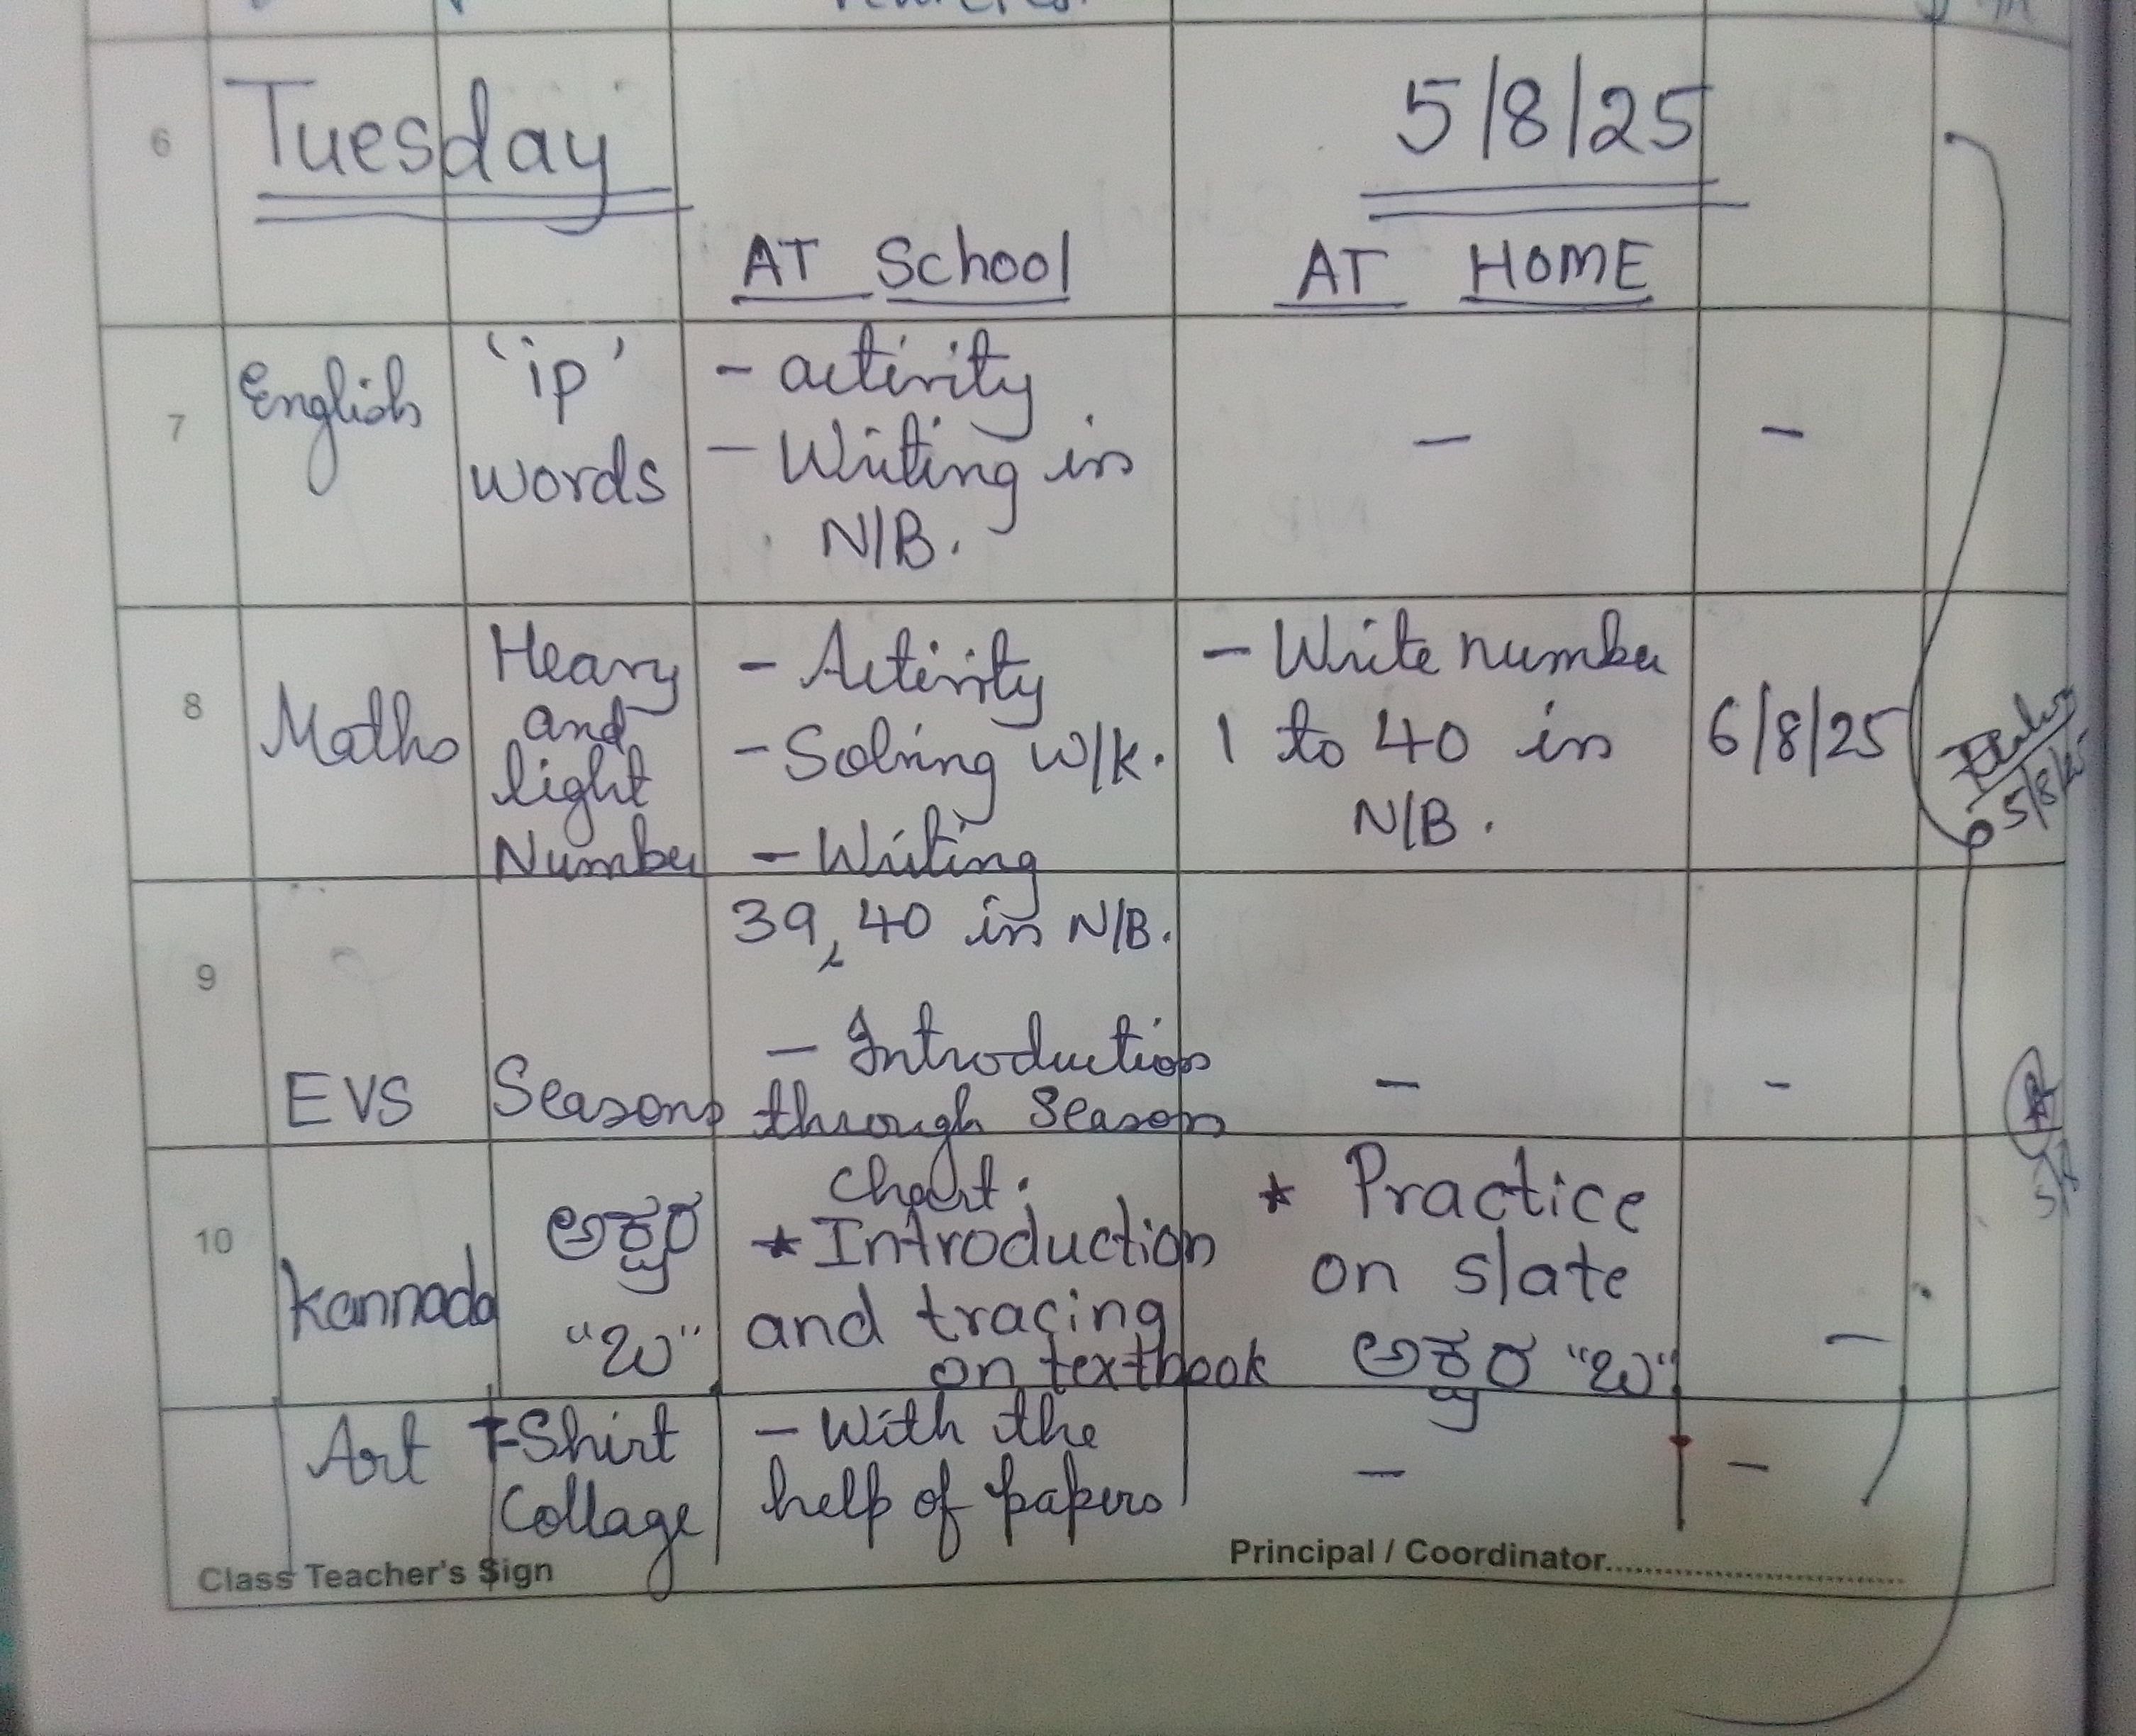 6 Tuesday 5/8/25
AT School AT HOME
7 English 'ip' words - activity - -
- Writing in
N/B.
8 Maths Heavy and light Number - Activity - Write number
- Solving W/k. 1 to 40 in 6/8/25
- Writing N/B.
9 39, 40 in N/B.
EVS Seasons - Introduction - -
through Season
chart.
10 Kannada ಅಕ್ಷರ "ಖ" * Introduction * Practice
and tracing on slate
on textbook ಅಕ್ಷರ "ಖ" -
Art T-Shirt Collage - With the - -
help of papers
Class Teacher's Sign Principal / Coordinator
5/8/25